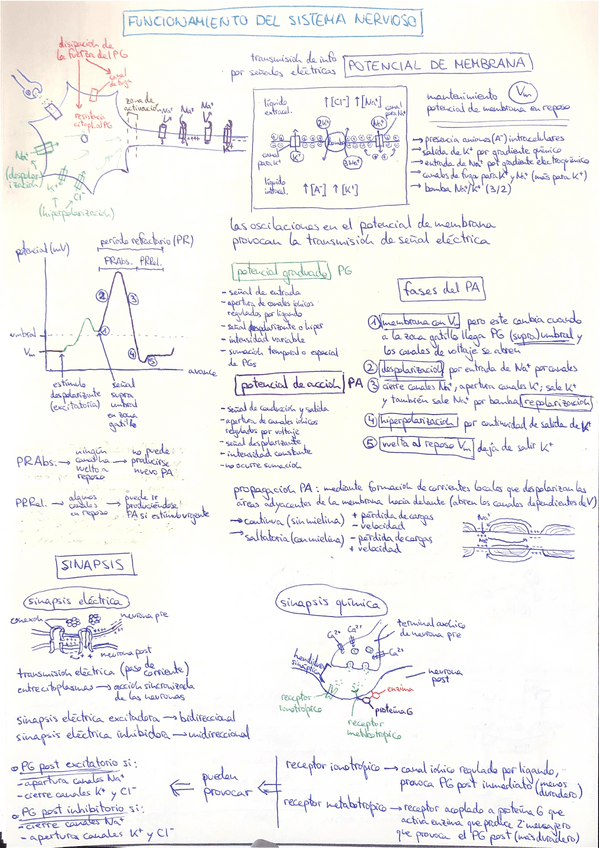 FUNCIONAMIENTO DEL SISTEMA NERVIOSO
disipación de
la fuerza del PG
canal
de fuga
resistencia
citopl. al PG
zona de
activación
Na⁺
Na⁺
Na⁺
Na⁺
(despolarización)
K⁺
K⁺
(hiperpolarización)
transmisión de info
por señales eléctricas
POTENCIAL DE MEMBRANA
líquido
extracel.
↑[Cl⁻] ↑[Na⁺]
canal
para Na⁺
2K⁺
bomba
3Na⁺
canal
para K⁺
líquido
intracel.
↑[A⁻] ↑[K⁺]
mantenimiento Vm
potencial de membrana en reposo
→ presencia aniones (A⁻) intracelulares
→ salida de K⁺ por gradiente químico
→ entrada de Na⁺ por gradiente electroquímico
→ canales de fuga para K⁺ y Na⁺ (más para K⁺)
→ bomba Na⁺/K⁺ (3/2)
las oscilaciones en el potencial de membrana
provocan la transmisión de señal eléctrica
potencial (mV)
período refractario (PR)
PRAbs.
PRRel.
umbral
Vm
1
2
3
4
5
avance
estímulo
despolarizante
(excitatorio)
señal
supra
umbral
en zona
gatillo
potencial graduado PG
- señal de entrada
- apertura de canales iónicos
regulados por ligando
- señal despolarizante o hiper
- intensidad variable
- sumación temporal o espacial
de PGs
potencial de acción PA
- señal de conducción y salida
- apertura de canales iónicos
regulados por voltaje
- señal despolarizante
- intensidad constante
- no ocurre sumación
fases del PA
1 membrana con Vm pero este cambia cuando
a la zona gatillo llega PG (supra)umbral y
los canales de voltaje se abren
2 despolarización por entrada de Na⁺ por canales
3 cierre canales Na⁺, apertura canales K⁺; sale K⁺
y también sale Na⁺ por bomba repolarización
4 hiperpolarización por continuidad de salida de K⁺
5 vuelta al reposo Vm deja de salir K⁺
PRAbs. → ningún canal ha vuelto a reposo → no puede producirse nuevo PA
PRRel. → algunos canales en reposo → puede ir produciéndose PA si estímulo urgente
propagación PA: mediante formación de corrientes locales que despolarizan las
áreas adyacentes de la membrana hacia delante (abren los canales dependientes de V)
→ continua (sin mielina) + pérdida de cargas
- velocidad
→ saltatoria (con mielina) - pérdida de cargas
+ velocidad
Na⁺
Na⁺
SINAPSIS
sinapsis eléctrica
conexón
neurona pre
neurona post
transmisión eléctrica (paso de corriente)
entre citoplasmas → acción sincronizada
de las neuronas
sinapsis eléctrica excitadora → bidireccional
sinapsis eléctrica inhibidora → unidireccional
sinapsis química
Ca²⁺
Ca²⁺
Ca²⁺
terminal axónico
de neurona pre
hendidura
sináptica
neurona
post
enzima
proteína G
receptor
ionotrópico
receptor
metabotrópico
PG post excitatorio si:
- apertura canales Na⁺
- cierre canales K⁺ y Cl⁻
PG post inhibitorio si:
- cierre canales Na⁺
- apertura canales K⁺ y Cl⁻
pueden
provocar
receptor ionotrópico → canal iónico regulado por ligando,
provoca PG post inmediato (menos
duradero)
receptor metabotrópico → receptor acoplado a proteína G que
activa enzima que produce 2º mensajero
que provoca el PG post (más duradero)